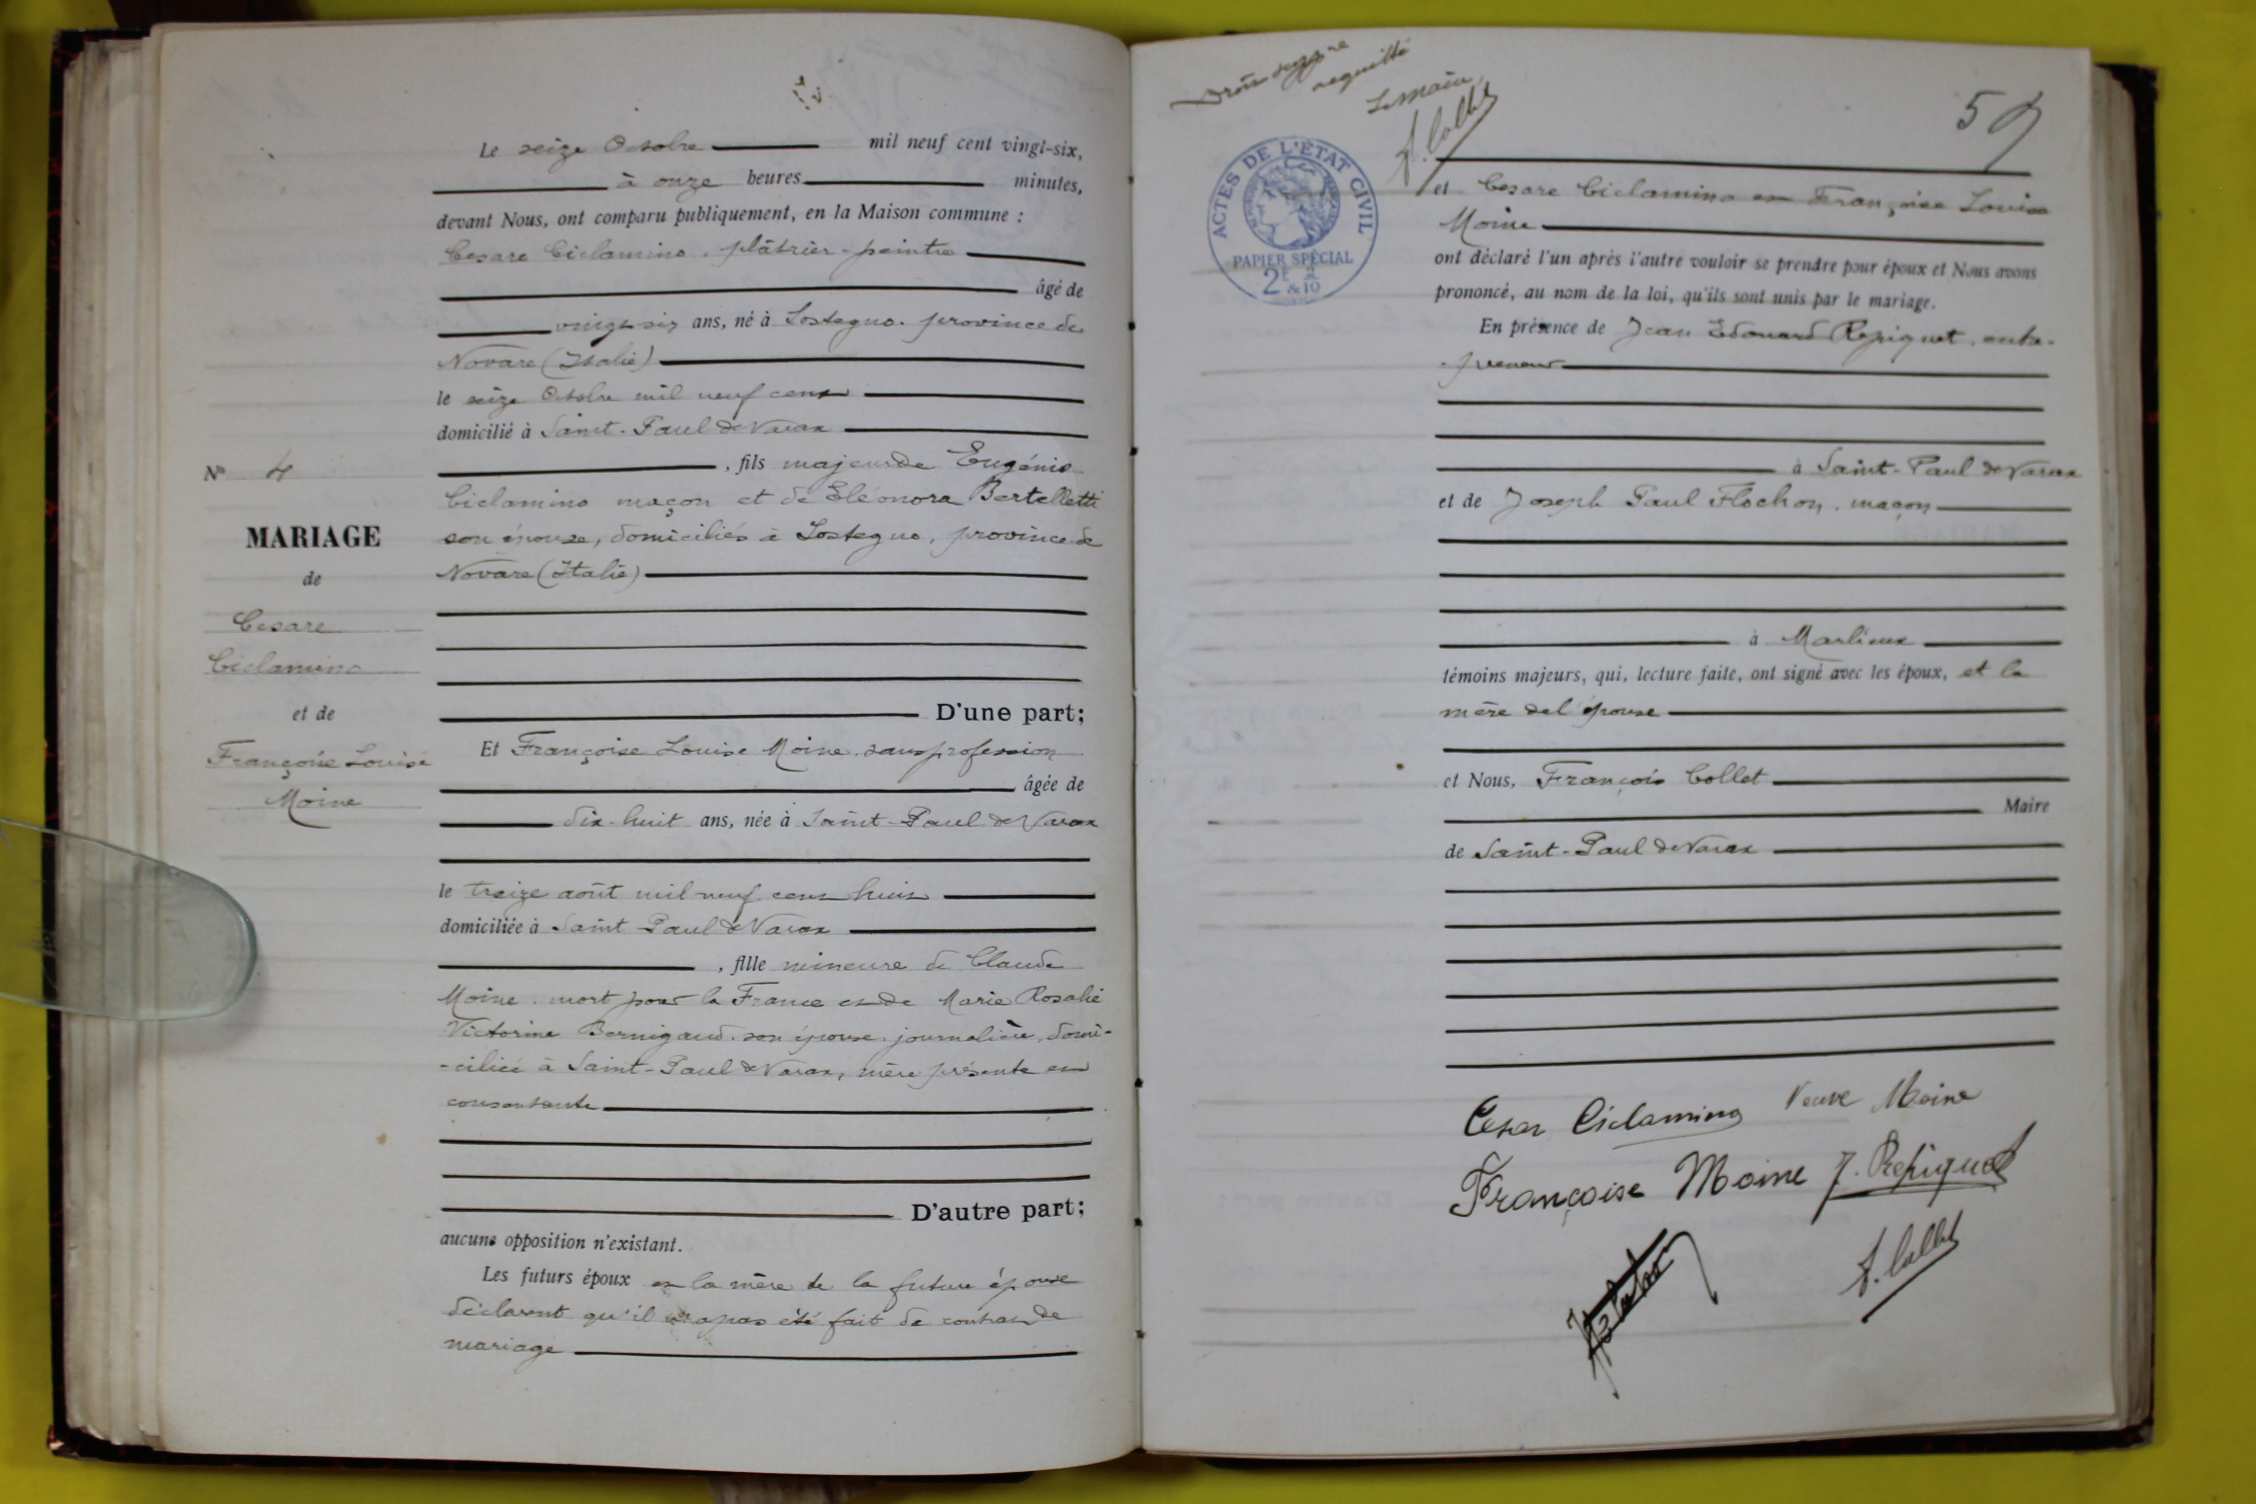 Le seize Octobre mil neuf cent vingt-six,
à onze heures minutes,
devant Nous, ont comparu publiquement, en la Maison commune :
Cesare Ciclamino. plâtrier-peintre
âgé de
vingt six ans, né à Sostegno. province de
Novare (Italie)
le seize Octobre mil neuf cent
domicilié à Saint-Paul de Varax
, fils majeur de Eugénio
Ciclamino maçon et de Eléonora Bertelletti
son épouse, domiciliés à Sostegno, province de
Novare (Italie)
D'une part;
Et Françoise Louise Moine. sans profession
âgée de
dix-huit ans, née à Saint-Paul de Varax
le treize août mil neuf cent huit
domiciliée à Saint Paul de Varax
, fille mineure de Claude
Moine. mort pour la France et de Marie Rosalie
Victorine Bernigaud. son épouse. journalière, domi-
-ciliée à Saint-Paul de Varax, mère présente et
consentante
D'autre part;
aucune opposition n'existant.
Les futurs époux et la mère de la future épouse
déclarent qu'il n'a pas été fait de contrat de
mariage
No 4
MARIAGE
de
Cesare
Ciclamino
et de
Françoise Louise
Moine
acquitté
Le maire,
F. Collet
59
ACTES DE L'ETAT CIVIL
PAPIER SPÉCIAL
2F & 2/10
et Cesare Ciclamino et Françoise Louise
Moine
ont déclaré l'un après l'autre vouloir se prendre pour époux et Nous avons
prononcé, au nom de la loi, qu'ils sont unis par le mariage.
En présence de Jean Edouard Repiquet, entre-
-preneur
à Saint-Paul de Varax
et de Joseph Paul Flochon. maçon
à Marlieux
témoins majeurs, qui, lecture faite, ont signé avec les époux, et la
mère de l'épouse
et Nous, François Collet
Maire
de Saint-Paul de Varax
Cesar Ciclamino Veuve Moine
Françoise Moine J. Repiquet
F. Collet